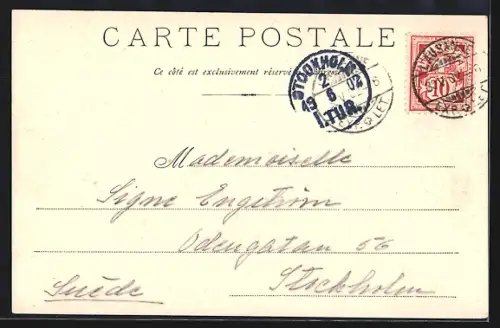 CARTE POSTALE
Ce côté est exclusivement réservé
STOCKHOLM
2 6 02
1.TUR.
LAUSANNE
EXP. LET.
10
Mademoiselle
Signe Engström
Odengatan 56
Stockholm
Suède